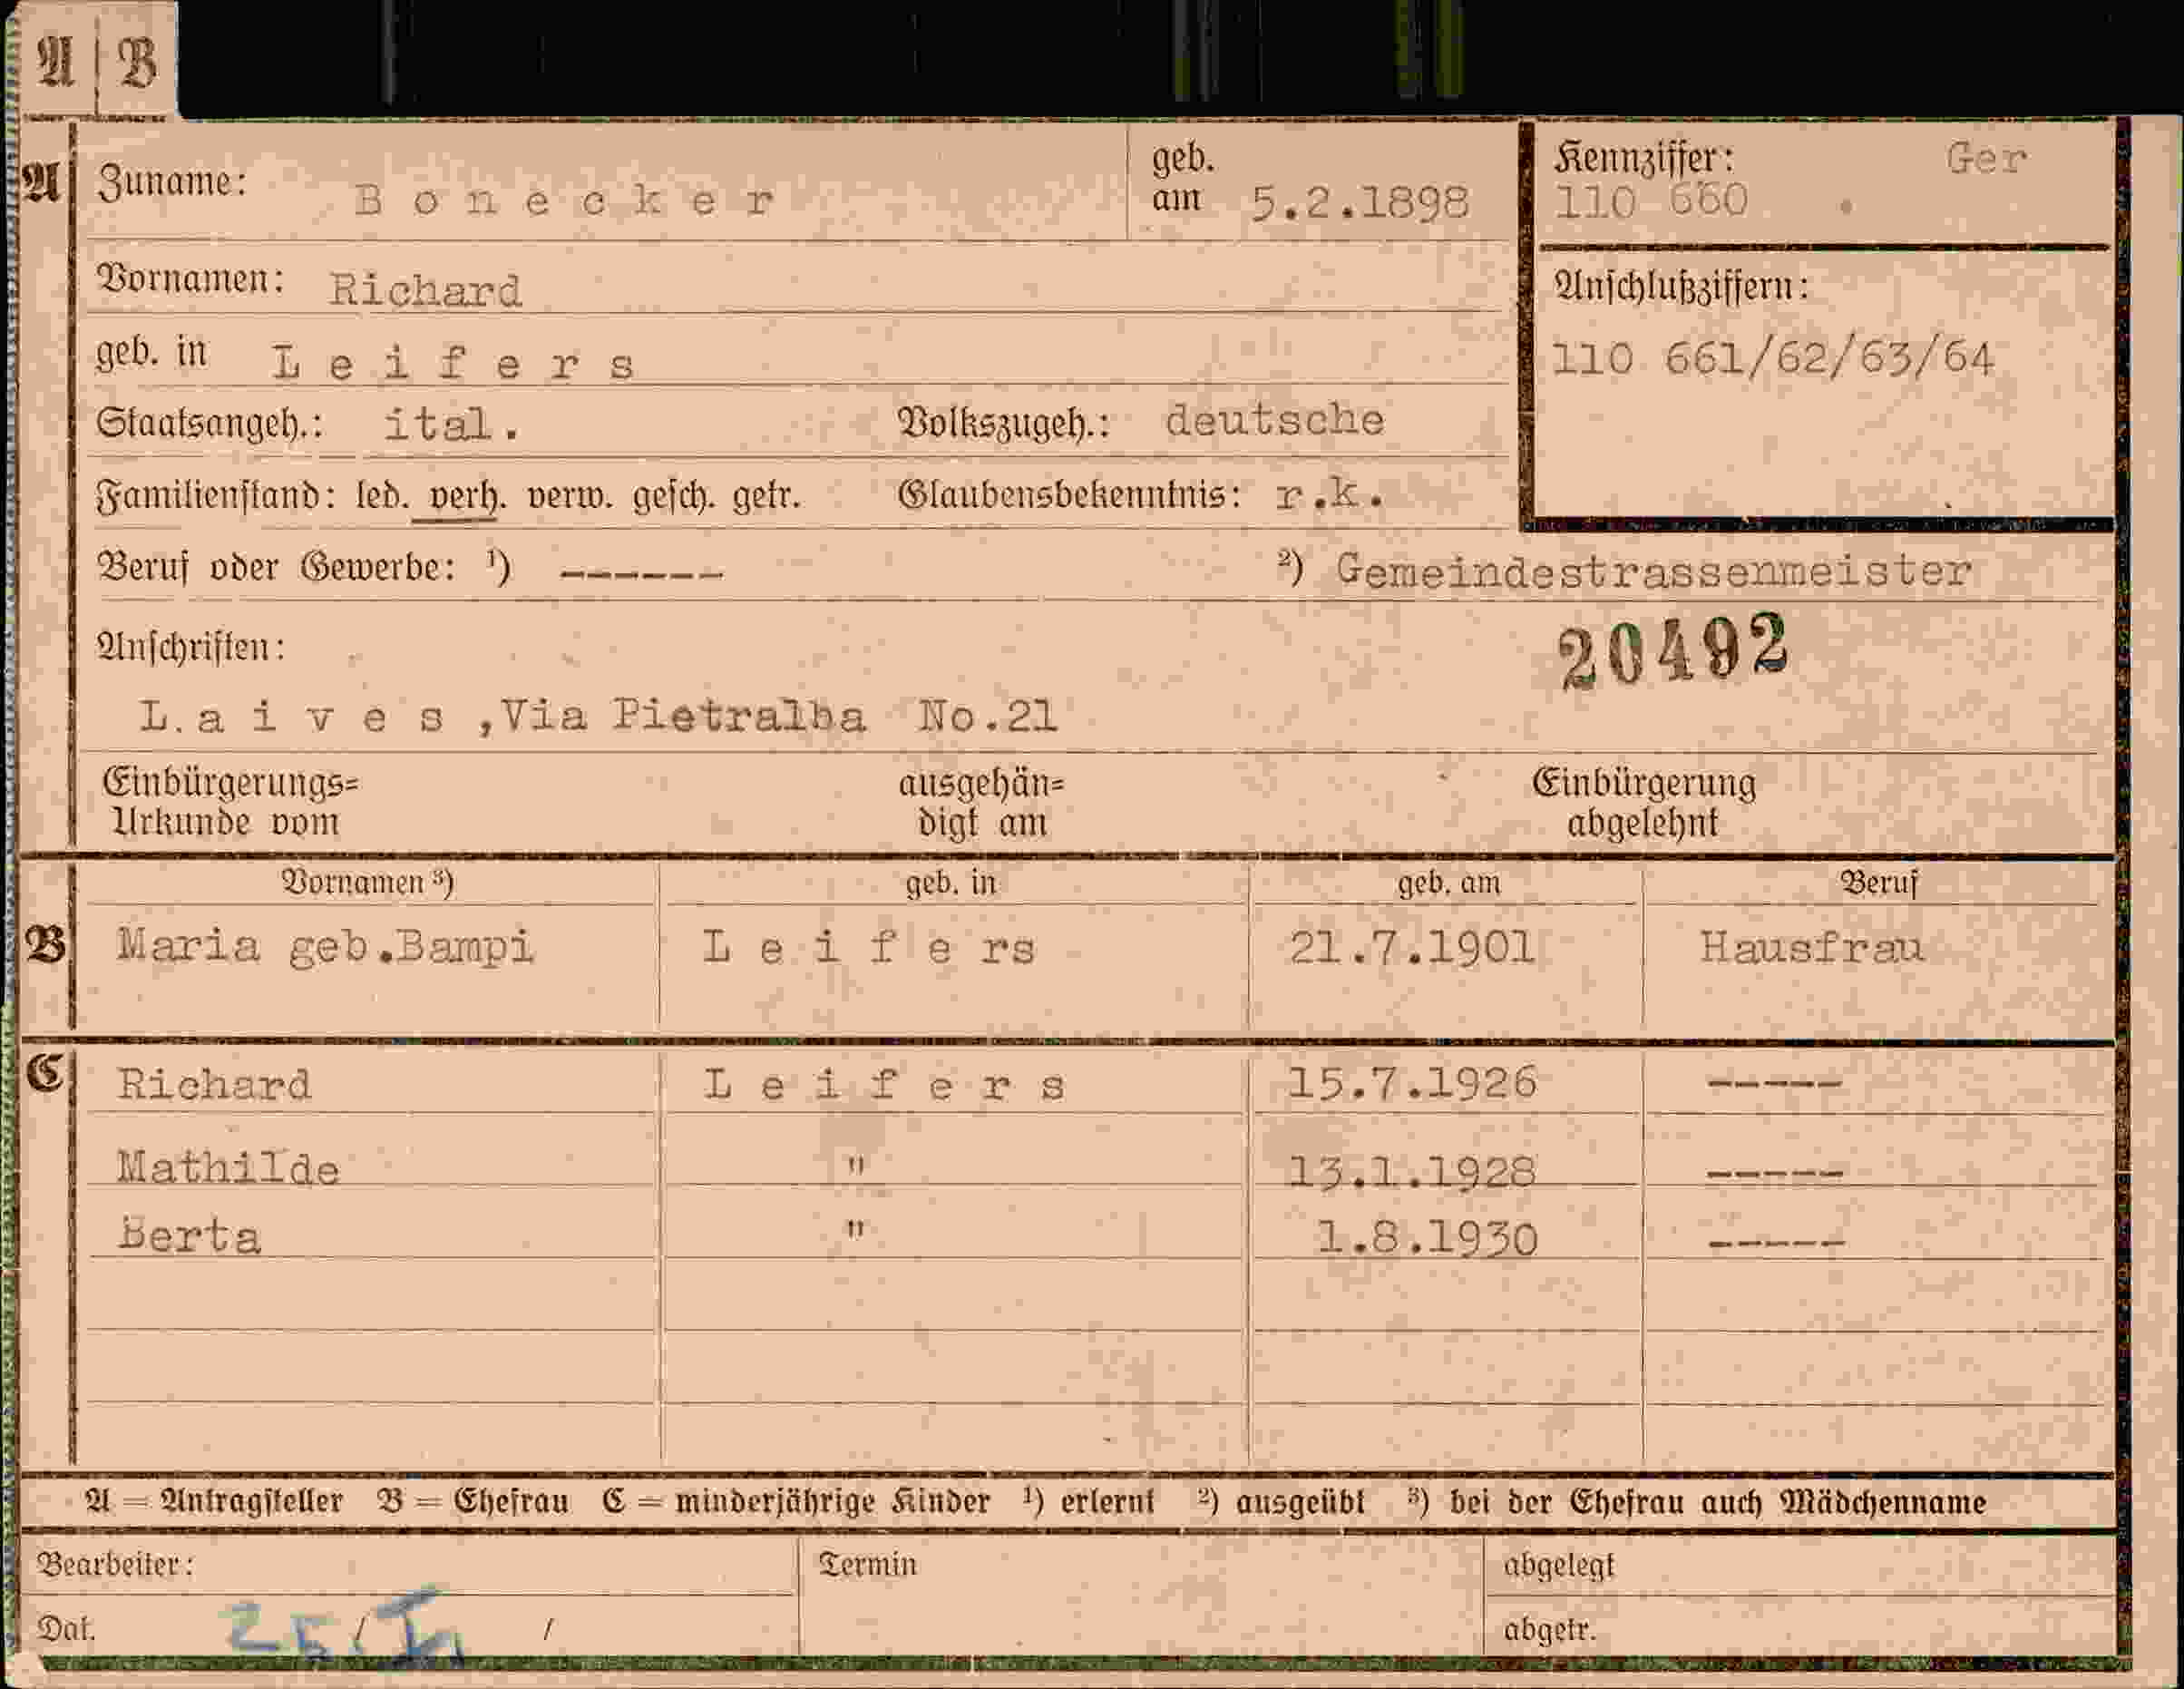 A | B
A Zuname: Bonecker geb. am 5.2.1898 Kennziffer: Ger
110 660
Vornamen: Richard Anschlußziffern:
geb. in Leifers 110 661/62/63/64
Staatsangeh.: ital. Volkszugeh.: deutsche
Familienstand: led. verh. verw. gesch. getr. Glaubensbekenntnis: r.k.
Beruf oder Gewerbe: ¹) ------ ²) Gemeindestrassenmeister
Anschriften: 20492
L.aives,Via Pietralba No.21
Einbürgerungs= ausgehän= Einbürgerung
Urkunde vom digt am abgelehnt
Vornamen ³) geb. in geb. am Beruf
B Maria geb.Bampi Leifers 21.7.1901 Hausfrau
C Richard Leifers 15.7.1926 -----
Mathilde " 13.1.1928 -----
Berta " 1.8.1930 -----
A = Antragsteller B = Ehefrau C = minderjährige Kinder ¹) erlernt ²) ausgeübt ³) bei der Ehefrau auch Mädchenname
Bearbeiter: Termin abgelegt
Dat. 25 / / abgetr.